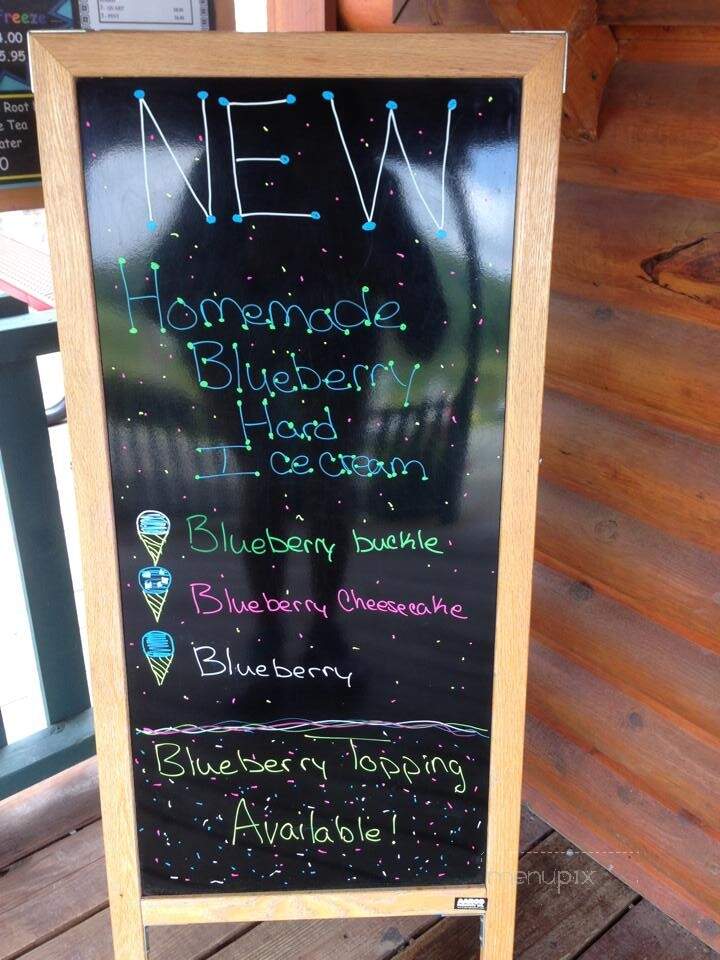 freeze
.00
5.95
Root
Tea
ater
0
NEW
Homemade
Blueberry
Hard
Ice cream
Blueberry buckle
Blueberry Cheesecake
Blueberry
Blueberry Topping
Available!
menupix